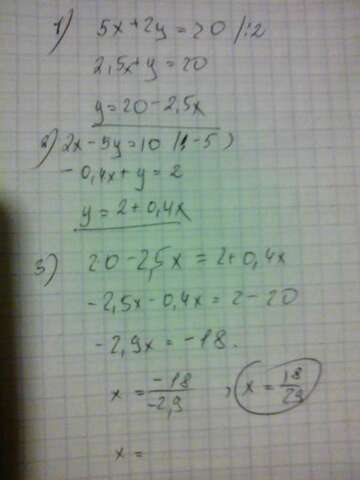 1) 5x + 2y = 20 /:2
2,5x + y = 20
y = 20 - 2,5x
2) 2x - 5y = 10 /(: -5)
-0,4x + y = 2
y = 2 + 0,4x
3) 20 - 2,5x = 2 + 0,4x
-2,5x - 0,4x = 2 - 20
-2,9x = -18.
x = -18/-2,9 , x = 18/29
x =